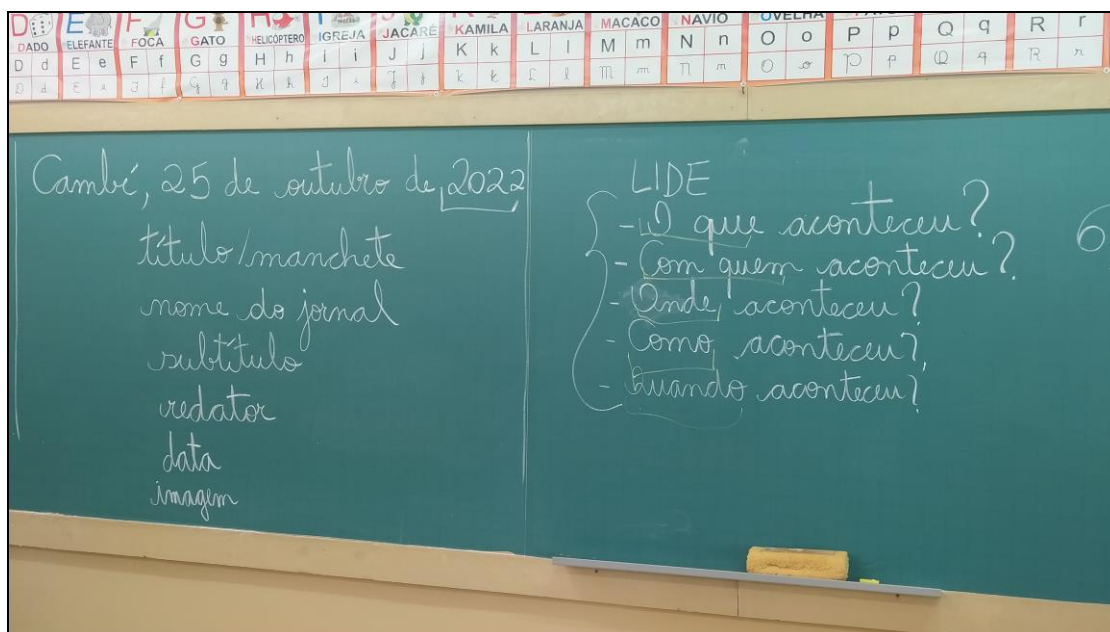 DADO ELEFANTE FOCA GATO HELICÓPTERO IGREJA JACARÉ KAMILA LARANJA MACACO NAVIO OVELHA
D d E e F f G g H h I i J j K k L l M m N n O o P p Q q R r
D d E e F f G g H h I i J j K k L l M m N n O o P p Q q R r
Cambé, 25 de outubro de 2022
título/manchete
nome do jornal
subtítulo
redator
data
imagem
LIDE
- O que aconteceu?
- Com quem aconteceu?
- Onde aconteceu?
- Como aconteceu?
- Quando aconteceu?
6